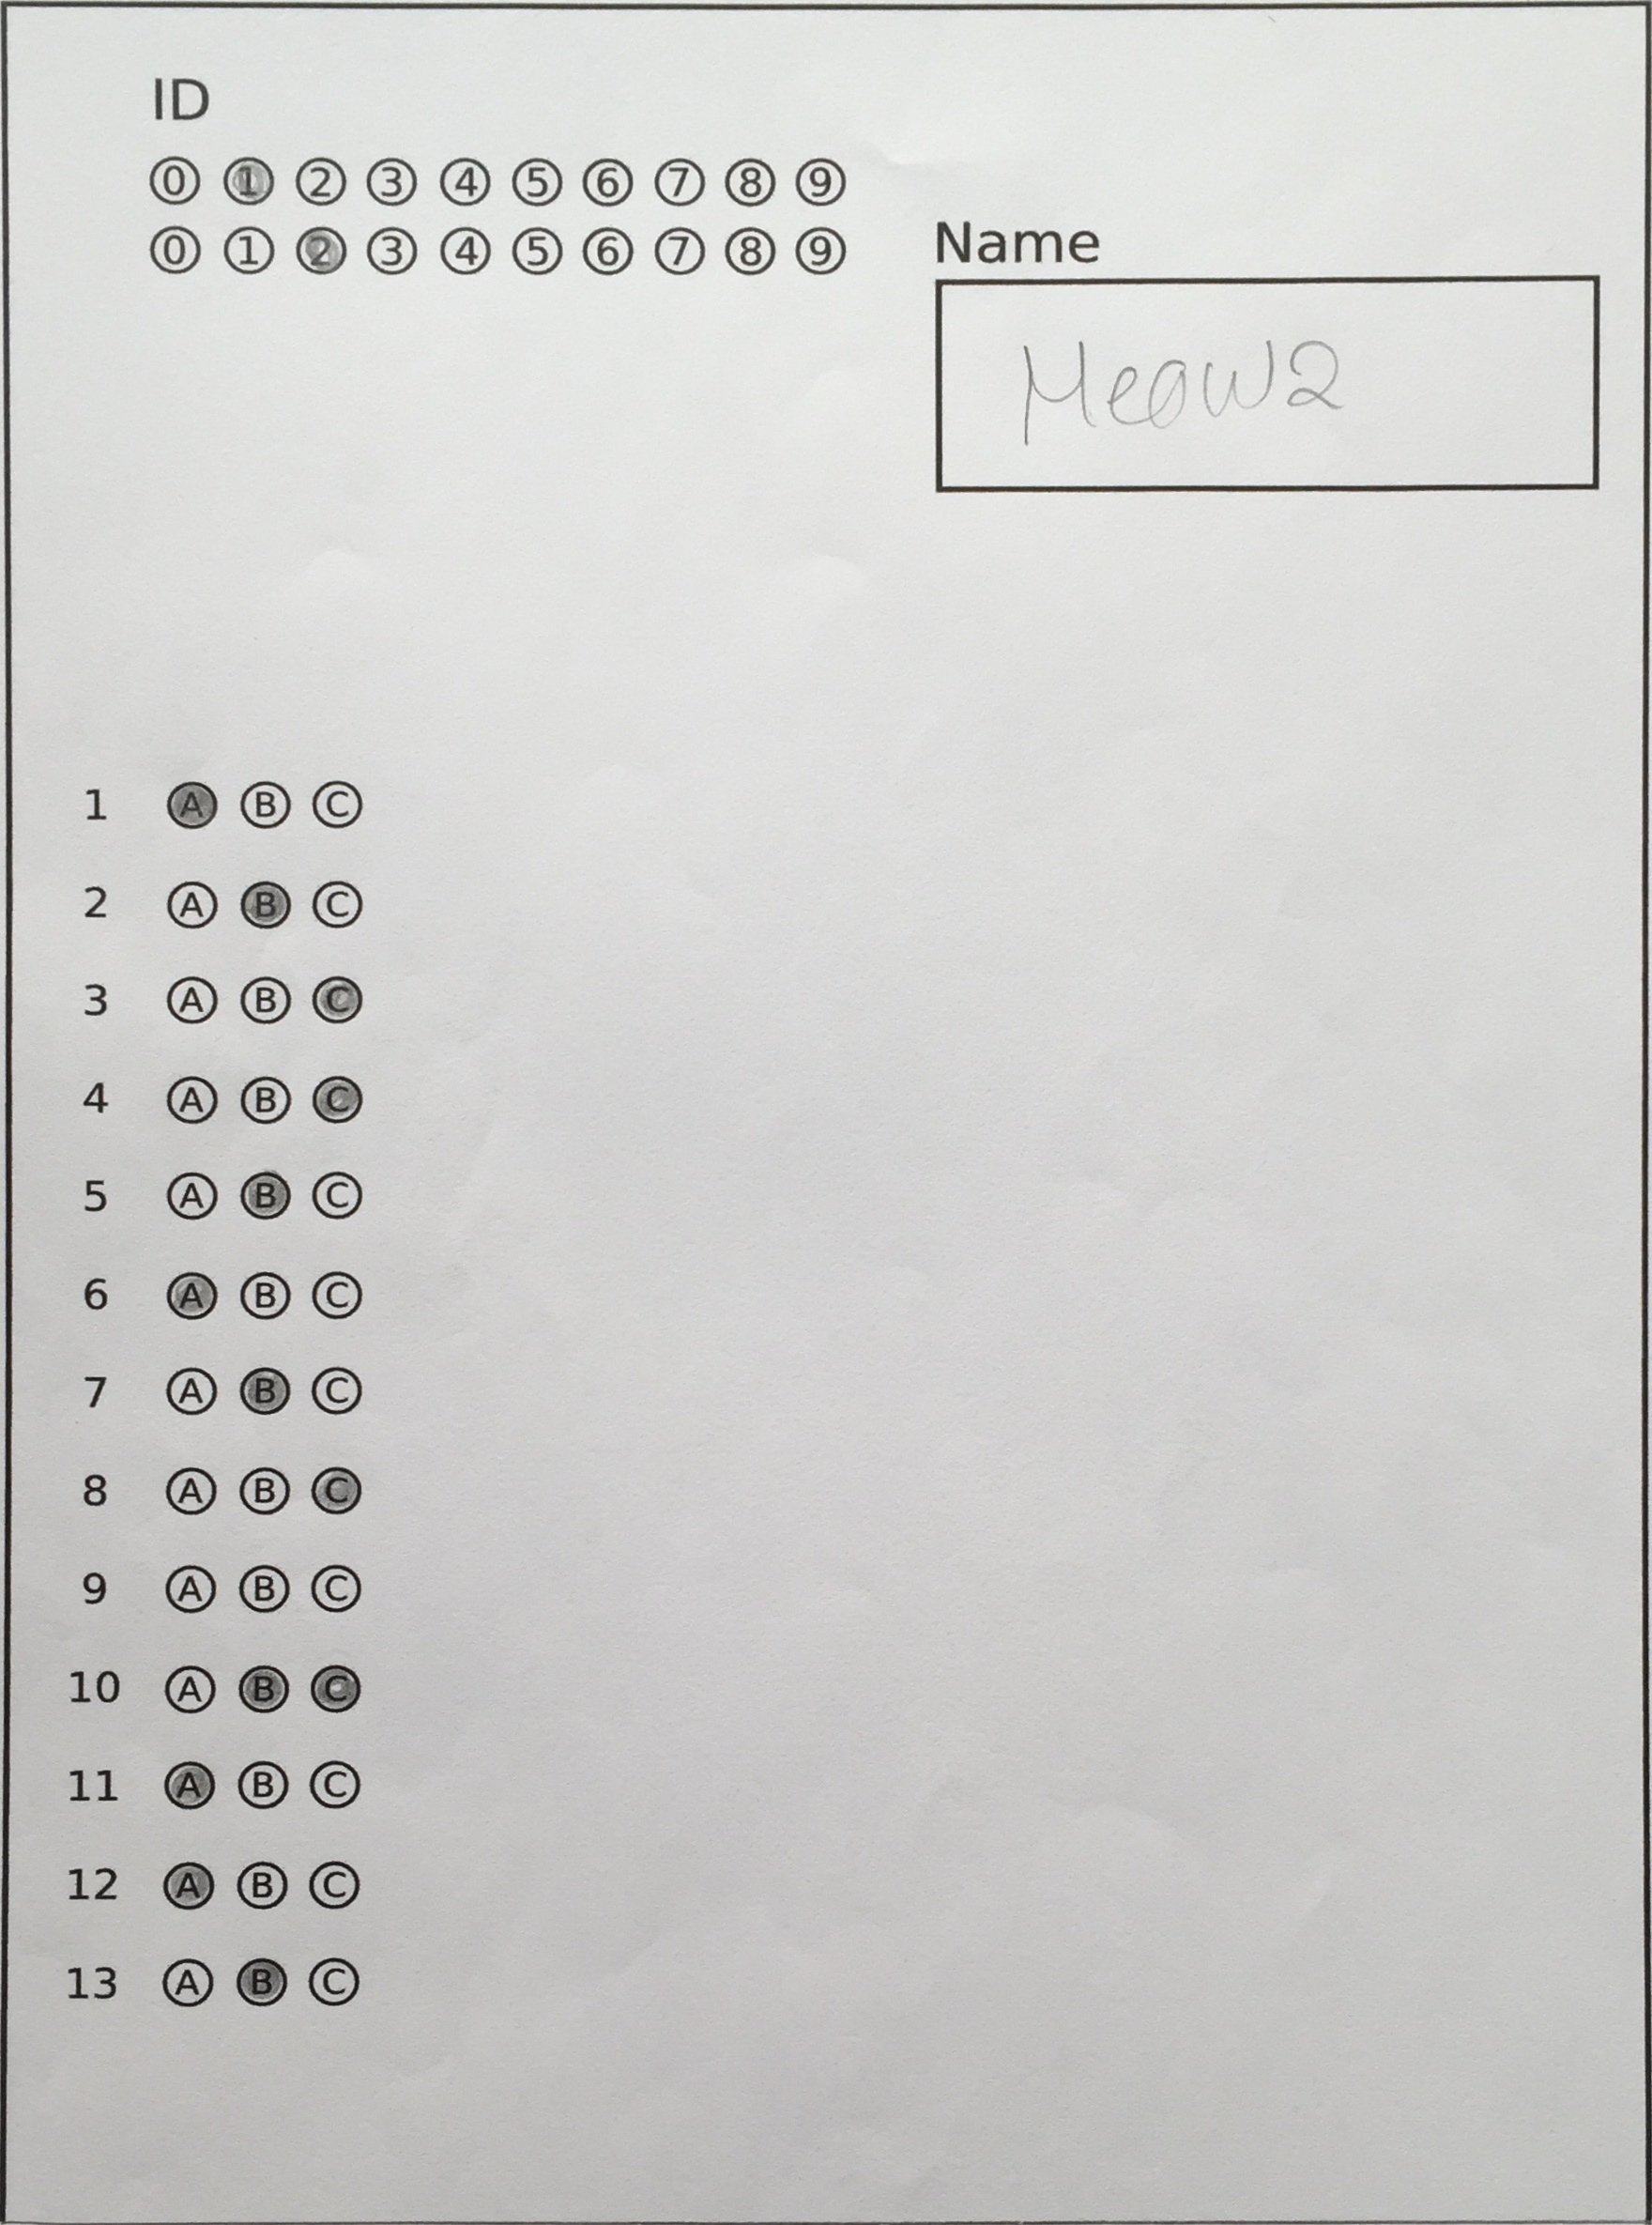 ID
0 1 2 3 4 5 6 7 8 9
0 1 2 3 4 5 6 7 8 9
Name
Meow2
1 A B C
2 A B C
3 A B C
4 A B C
5 A B C
6 A B C
7 A B C
8 A B C
9 A B C
10 A B C
11 A B C
12 A B C
13 A B C